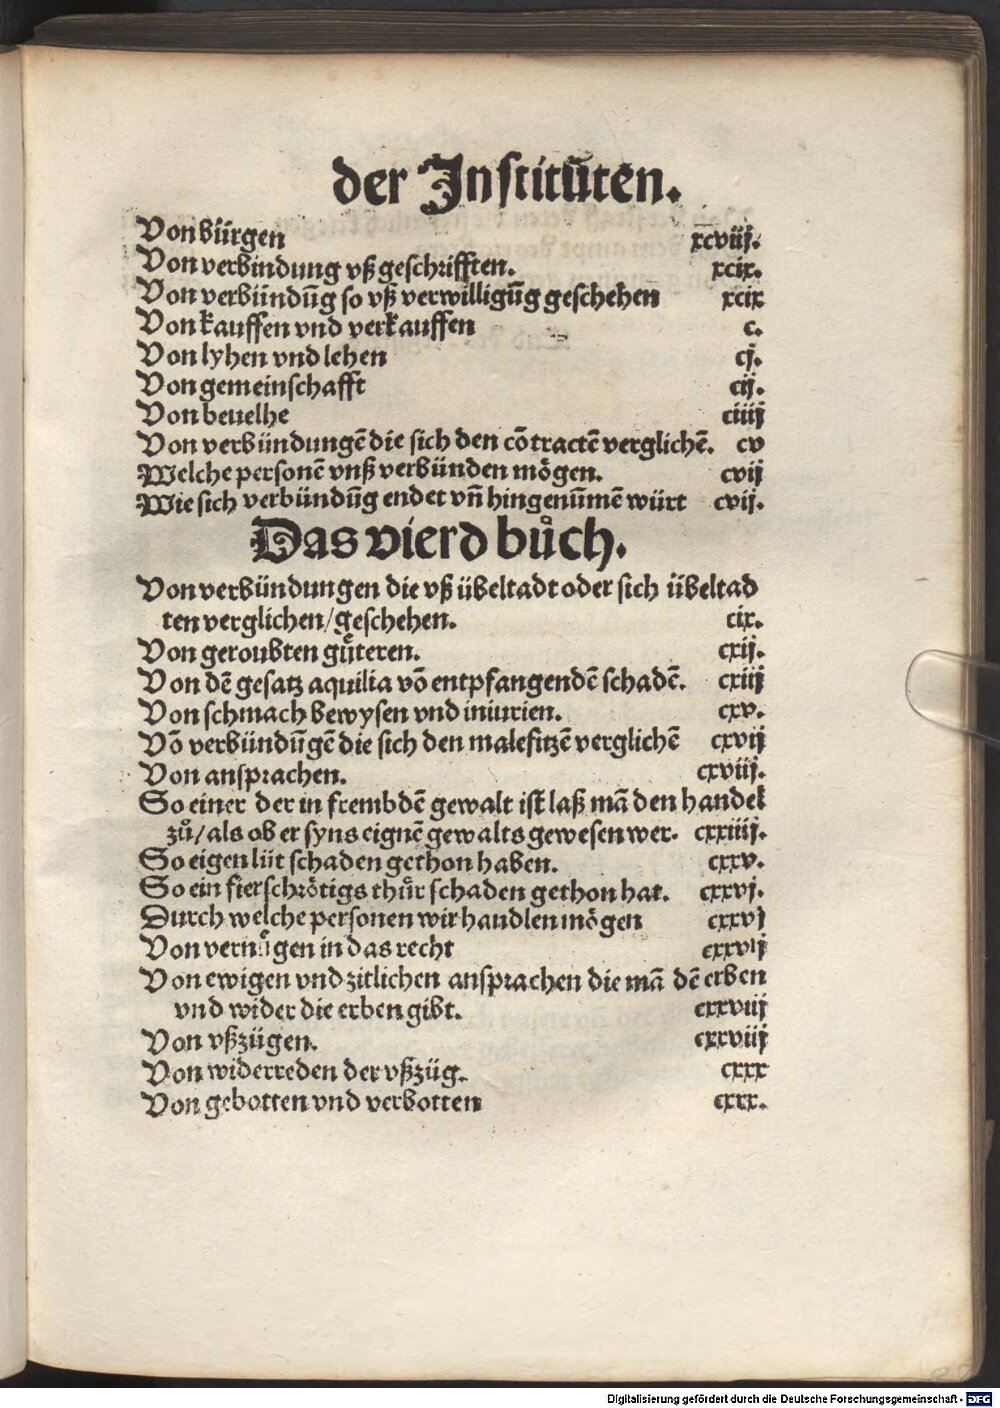 der Instituten.
Von bürgen xcviij.
Von verbindung vß geschrifften. xcix.
Von verbündūg so vß verwilligūg geschehen xcix
Von kauffen vnd verkauffen c.
Von lyhen vnd lehen cj.
Von gemeinschafft cij.
Von beuelhe ciiij
Von verbündungē die sich den cōtractē verglichē. cv
Welche personē vnß verbünden mögen. cvij
Wie sich verbündūg endet vñ hingenūmē würt cvij.
Das vierd bůch.
Von verbündungen die vß übeltadt oder sich übeltad
ten verglichen/geschehen. cix.
Von geroubten gůteren. cxij.
Von dē gesatz aquilia vō entpfangendē schadē. cxiij
Von schmach bewysen vnd iniurien. cxv.
Vō verbündūgē die sich den malefitzē verglichē cxvij
Von ansprachen. cxviij.
So einer der in frembdē gewalt ist laß mā den handel
zů/als ob er syns eignē gewalts gewesen wer. cxxiiij.
So eigen lüt schaden gethon haben. cxxv.
So ein fierschrötigs thůr schaden gethon hat. cxxvj.
Durch welche personen wir handlen mögen cxxvj
Von in das recht cxxvij
Von ewigen vnd zitlichen ansprachen die mā dē erben
vnd wider die erben gibt. cxxviij
Von vßzügen. cxxviij
Von widerreden der vßzüg. cxxx
Von gebotten vnd verbotten cxxx.
Digitalisierung gefördert durch die Deutsche Forschungsgemeinschaft - DFG